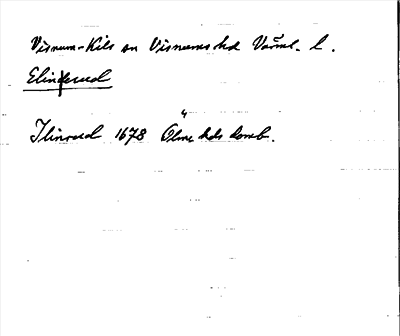 Visnum-Kils sn Visnums hd Värml. l.
Elinrud
Ilinrud 1678 Ölme hds domb.